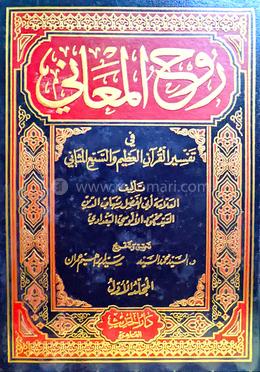 روح المعاني
في
تفسير القرآن العظيم والسبع المثاني
تأليف
العلامة أبي الفضل شهاب الدين
السيد محمود الألوسي البغدادي
تحقيق وتخريج
د. السيد محمد السيد سيد إبراهيم عمران
المجلد الأول
دار الحديث
القاهرة